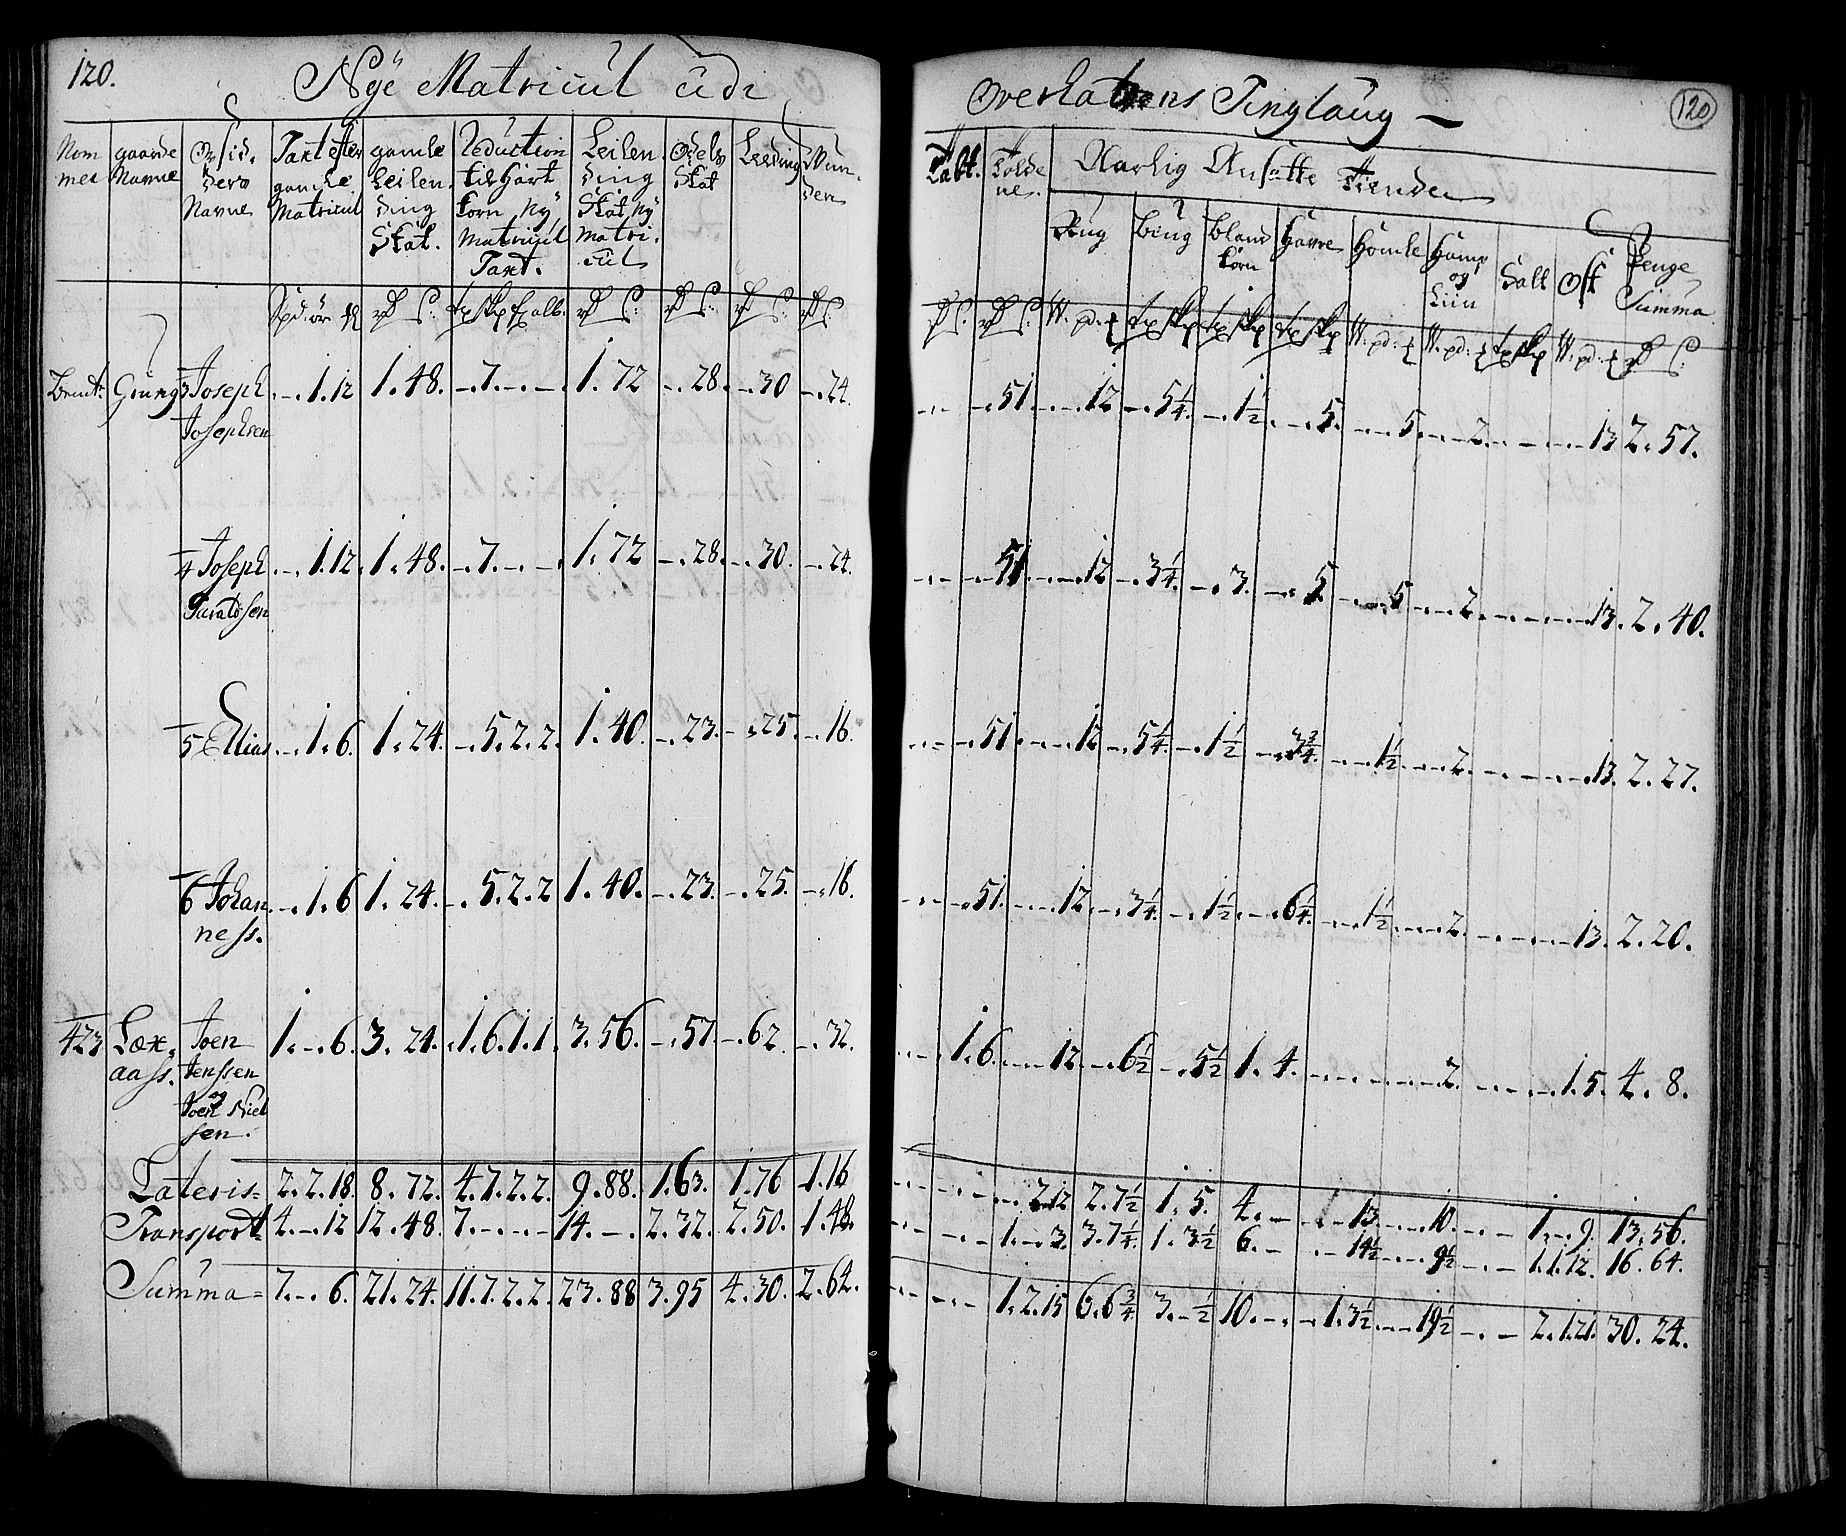 120. Nÿe Matricul udi Overhalens Tinglaug 120
Nommer gaarde Navne Opsidderes Navne Taxt efter gamle Matricul gamle Leilending Skat. Reduction til Hartkorn nÿ Matricul Taxt. Leilending Skat nÿ Matricul Odels Skat Leeding
Foldene. Aarlig Ansatte Tiende
Rug Biug Bland korn Havre Homle Hamp og Liin Salt Ost Penge Summa
Joseph Josephsen -.1.12 1.48. -.7.-.- 1.72 -.28. -.30 -.24. -.- -.51. -.-.12 -.5¼. -.1½ -.5. -.-.5. -.-.2. -.- -.-.13 2.57.
4 Joseph -.1.12. 1.48. -.7.-.- 1.72 -.28. -.30. -.24. -.- -.51 -.-.12 -.3¼. -.3. -.5 -.-.5 -.-.2. -.- -.-.13. 2.40.
5 Ellias -.1.6. 1.24. -.5.2.2. 1.40. -.23. -.25. -.16. -.- -.51. -.-.12 -.5¼. -.1½ -.3¾. -.-.1½. -.-.2. -.- -.-.13. 2.27.
6 Johanness. -.1.6 1.24. -.5.2.2 1.40. -.23. -.25. -.16. -.- -.51. -.-.12. -.3¼. -.1½ -.6¼. -.-.1½. -.-.2. -.- -.-.13. 2.20.
423 Læx aass. Joen Jenssen og Joen Nielsen. 1.-.6. 3.24. 1.6.1.1. 3.56. -.57. -.62. -.32. -.- 1.6. -.-.12 -.6½ -.5½ 1.4. -.-.- -.-.2. -.- -.1.5. 4.8.
Lateris= 2.2.18. 8.72. 4.7.2.2. 9.88. 1.63. 1.76 1.16 -.- -.- -.2.12 2.7½ 1.5. 4.- -.-.13. -.-.10. -.- 1.-.9. 13.56.
Transport= 4.-.12 12.48. 7.-.-.- 14.-. 2.32. 2.50. 1.48. -.- -.- 1.-.3. 3.7¼. 1.3½ 6.- -.-.14½ -.-.9½ -.- 1.1.12. 16.64.
Summa= 7.-.6. 21.24. 11.7.2.2. 23.88 3.95 4.30. 2.64. -.- -.- 1.2.15 6.6¾ 3.-½ 10.- -.1.3½ -.-.19½ -.- 2.1.21. 30.24.